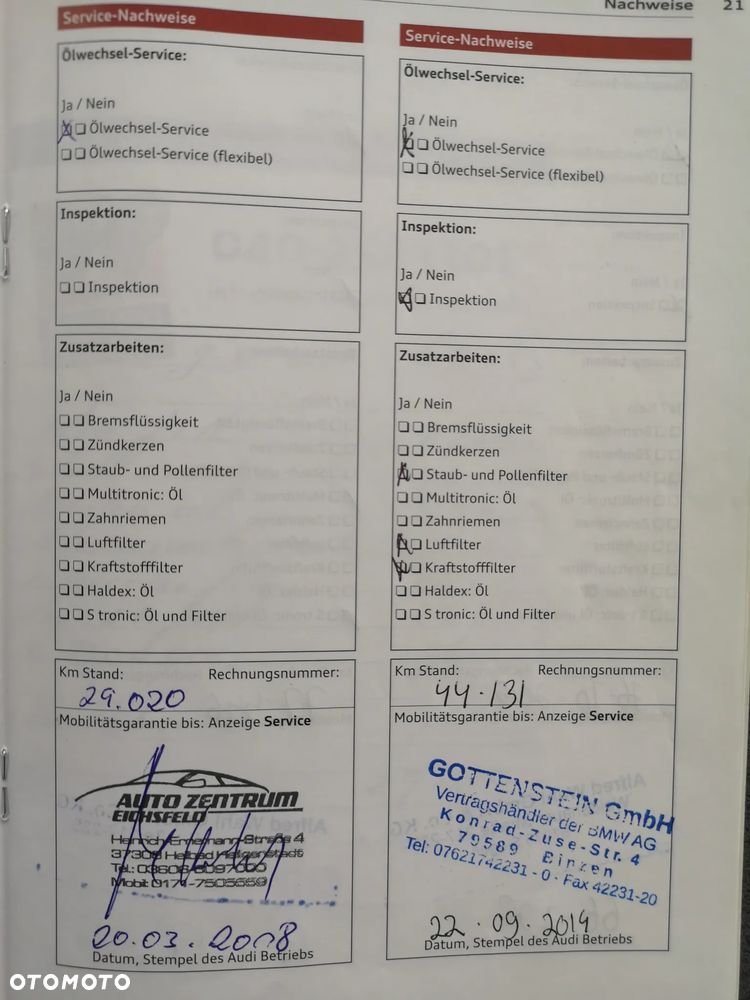 Nachweise 21
Service-Nachweise
Ölwechsel-Service:
Ja / Nein
Ölwechsel-Service
Ölwechsel-Service (flexibel)
Inspektion:
Ja / Nein
Inspektion
Zusatzarbeiten:
Ja / Nein
Bremsflüssigkeit
Zündkerzen
Staub- und Pollenfilter
Multitronic: Öl
Zahnriemen
Luftfilter
Kraftstofffilter
Haldex: Öl
S tronic: Öl und Filter
Km Stand: Rechnungsnummer:
29.020
Mobilitätsgarantie bis: Anzeige Service
AUTO ZENTRUM
EICHSFELD
Heinrich Straße 4
37308 Heilbad Heiligenstadt
Tel.:
Mobil:
20.03.2018
Datum, Stempel des Audi Betriebs
Service-Nachweise
Ölwechsel-Service:
Ja / Nein
Ölwechsel-Service
Ölwechsel-Service (flexibel)
Inspektion:
Ja / Nein
Inspektion
Zusatzarbeiten:
Ja / Nein
Bremsflüssigkeit
Zündkerzen
Staub- und Pollenfilter
Multitronic: Öl
Zahnriemen
Luftfilter
Kraftstofffilter
Haldex: Öl
S tronic: Öl und Filter
Km Stand: Rechnungsnummer:
44.131
Mobilitätsgarantie bis: Anzeige Service
GOTTENSTEIN GmbH
Vertragshändler der BMW AG
Konrad-Zuse-Str. 4
79589 Binzen
Tel: 07621/42231-0 · Fax 42231-20
22.09.2019
Datum, Stempel des Audi Betriebs
OTOMOTO